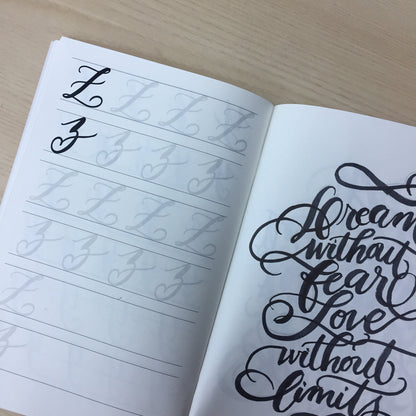 Z Z Z Z Z
z z z z
Z Z Z Z
z z z z
Z
z
Dream
without
fear
Love
without
limits